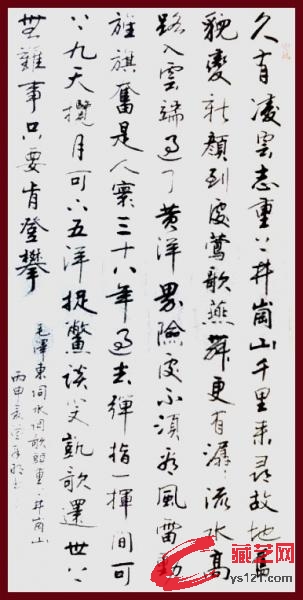 久有凌雲志重上井崗山千里来尋故地舊
貌變新顔到處鶯歌燕舞更有潺流水高
路入雲端過了黄洋界險處不須看風雷動
旌旗奮是人寰三十八年過去彈指一揮間可
上九天攬月可下五洋捉鱉談笑凱歌還世上
無難事只要肯登攀
毛澤東詞水調歌頭重上井崗山
丙申夏
藏艺网
ys121.com